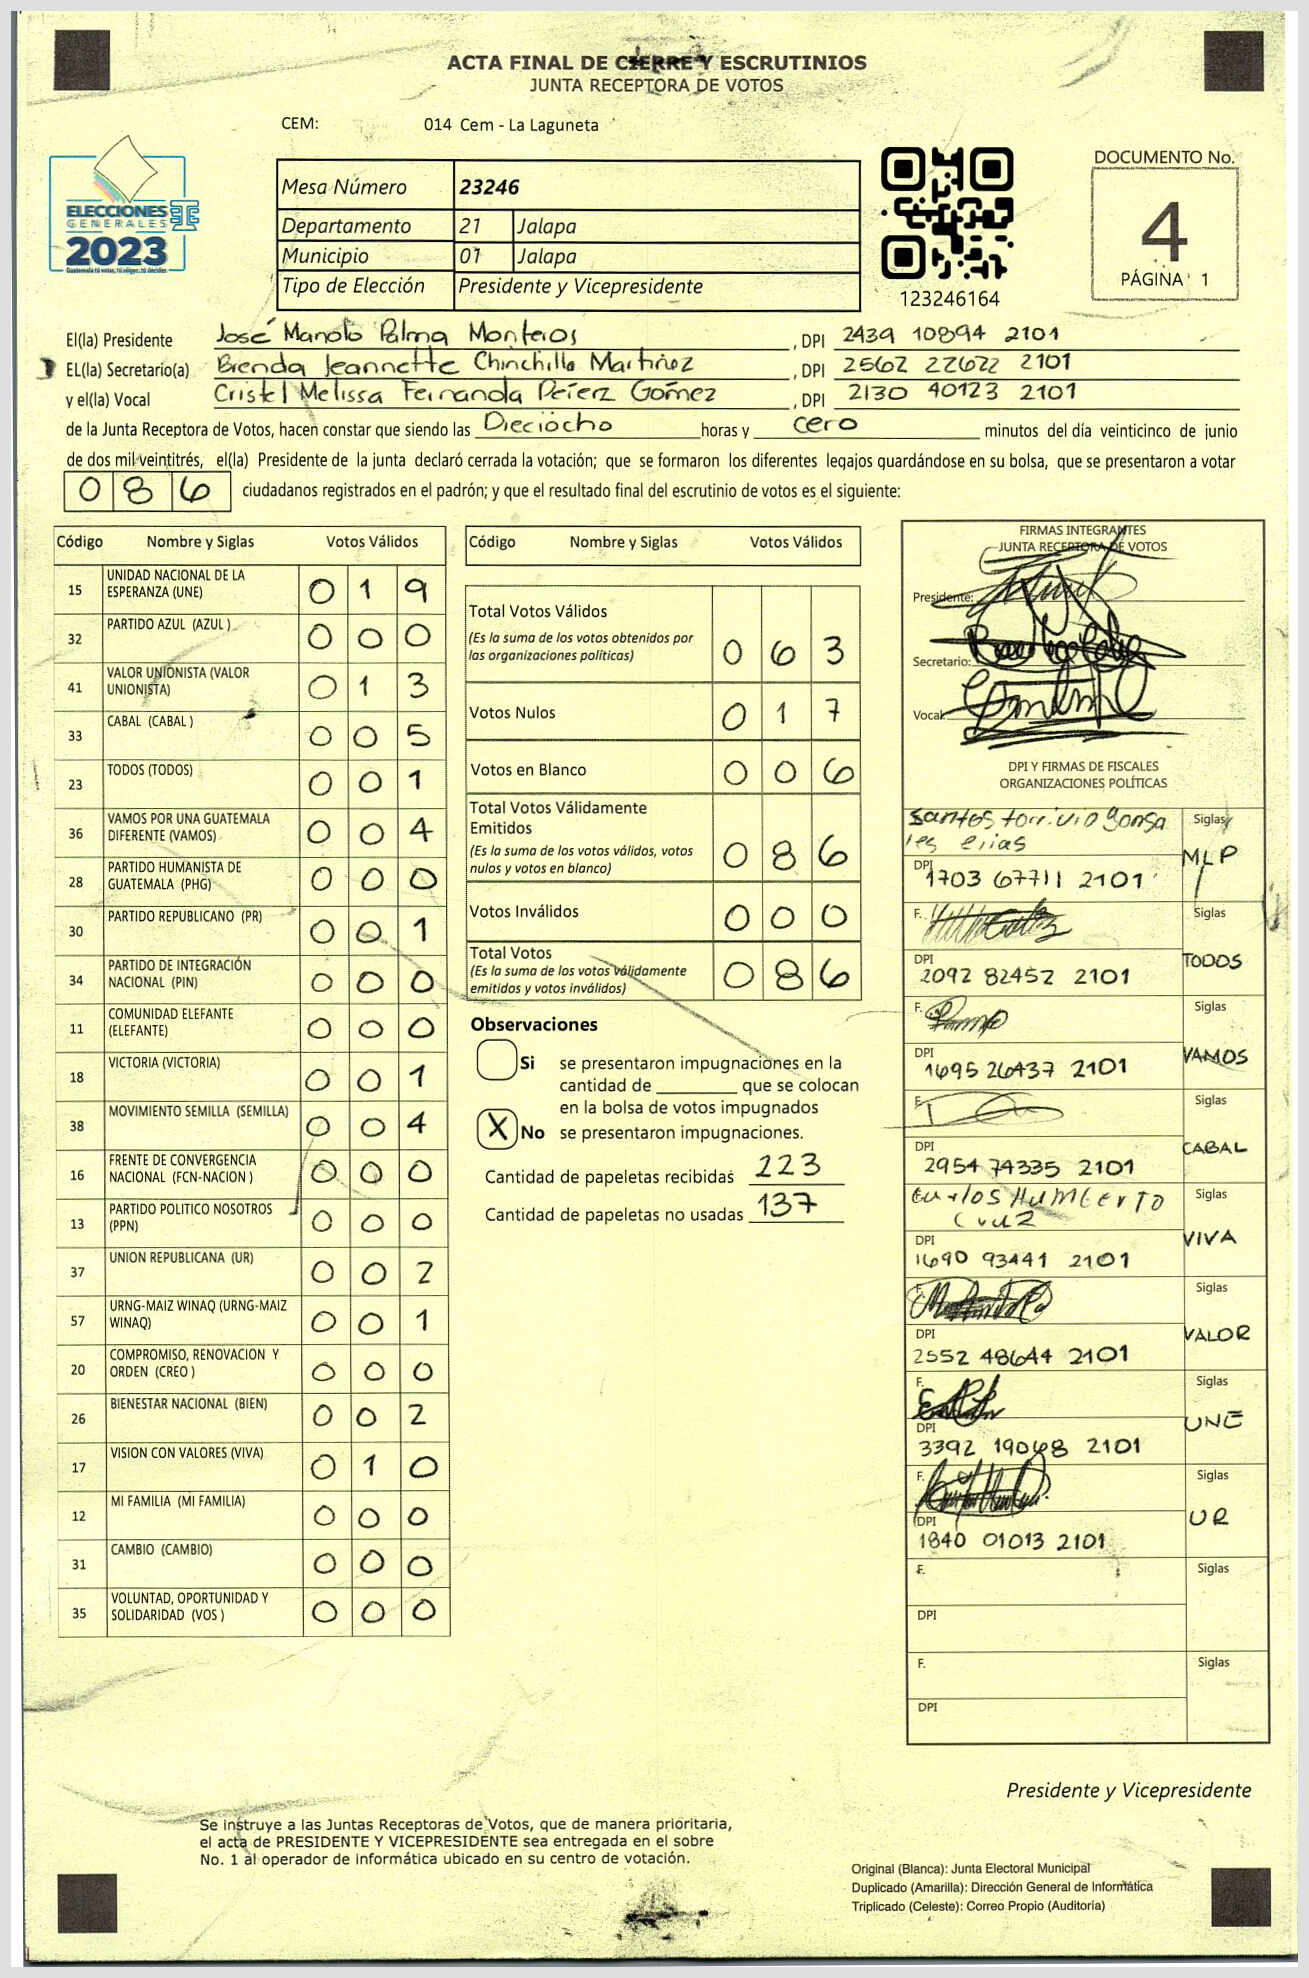 ACTA FINAL DE CIERRE Y ESCRUTINIOS
JUNTA RECEPTORA DE VOTOS
CEM: 014 Cem - La Laguneta
ELECCIONES
GENERALES
2023
Guatemala tú votas, tú eliges, tú decides
Mesa Número 23246
Departamento 21 Jalapa
Municipio 01 Jalapa
Tipo de Elección Presidente y Vicepresidente
123246164
DOCUMENTO No.
4
PÁGINA 1
El(la) Presidente José Manolo Palma Monteros , DPI 2439 10894 2101
EL(la) Secretario(a) Brenda Jeannette Chinchilla Martínez , DPI 2562 22622 2101
y el(la) Vocal Cristel Melissa Fernanda Péerz Gómez , DPI 2130 40123 2101
de la Junta Receptora de Votos, hacen constar que siendo las Dieciocho horas y cero minutos del día veinticinco de junio
de dos mil veintitrés, el(la) Presidente de la junta declaró cerrada la votación; que se formaron los diferentes legajos guardándose en su bolsa, que se presentaron a votar
086 ciudadanos registrados en el padrón; y que el resultado final del escrutinio de votos es el siguiente:
Código Nombre y Siglas Votos Válidos
15 UNIDAD NACIONAL DE LA ESPERANZA (UNE) 0 1 9
32 PARTIDO AZUL (AZUL ) 0 0 0
41 VALOR UNIONISTA (VALOR UNIONISTA) 0 1 3
33 CABAL (CABAL ) 0 0 5
23 TODOS (TODOS) 0 0 1
36 VAMOS POR UNA GUATEMALA DIFERENTE (VAMOS) 0 0 4
28 PARTIDO HUMANISTA DE GUATEMALA (PHG) 0 0 0
30 PARTIDO REPUBLICANO (PR) 0 0 1
34 PARTIDO DE INTEGRACIÓN NACIONAL (PIN) 0 0 0
11 COMUNIDAD ELEFANTE (ELEFANTE) 0 0 0
18 VICTORIA (VICTORIA) 0 0 1
38 MOVIMIENTO SEMILLA (SEMILLA) 0 0 4
16 FRENTE DE CONVERGENCIA NACIONAL (FCN-NACION ) 0 0 0
13 PARTIDO POLITICO NOSOTROS (PPN) 0 0 0
37 UNION REPUBLICANA (UR) 0 0 2
57 URNG-MAIZ WINAQ (URNG-MAIZ WINAQ) 0 0 1
20 COMPROMISO, RENOVACION Y ORDEN (CREO ) 0 0 0
26 BIENESTAR NACIONAL (BIEN) 0 0 2
17 VISION CON VALORES (VIVA) 0 1 0
12 MI FAMILIA (MI FAMILIA) 0 0 0
31 CAMBIO (CAMBIO) 0 0 0
35 VOLUNTAD, OPORTUNIDAD Y SOLIDARIDAD (VOS ) 0 0 0
Código Nombre y Siglas Votos Válidos
Total Votos Válidos 0 6 3
(Es la suma de los votos obtenidos por
las organizaciones políticas)
Votos Nulos 0 1 7
Votos en Blanco 0 0 6
Total Votos Válidamente
Emitidos 0 8 6
(Es la suma de los votos válidos, votos
nulos y votos en blanco)
Votos Inválidos 0 0 0
Total Votos 0 8 6
(Es la suma de los votos válidamente
emitidos y votos inválidos)
Observaciones
Si se presentaron impugnaciones en la
cantidad de que se colocan
en la bolsa de votos impugnados
X No se presentaron impugnaciones.
Cantidad de papeletas recibidas 223
Cantidad de papeletas no usadas 137
FIRMAS INTEGRANTES
JUNTA RECEPTORA DE VOTOS
Presidente:
Secretario:
Vocal:
DPI Y FIRMAS DE FISCALES
ORGANIZACIONES POLÍTICAS
Santos torrivio gonsa
les elias
Siglas MLP
DPI 1703 67711 2101
F. Siglas TODOS
DPI 2092 82452 2101
F. Siglas VAMOS
DPI 1695 26437 2101
F. Siglas CABAL
DPI 2954 74335 2101
Carlos HUMBERTO
Cruz
Siglas VIVA
DPI 1690 93441 2101
F. Siglas VALOR
DPI 2552 48644 2101
F. Siglas UNE
DPI 3392 19068 2101
F. Siglas UR
DPI 1840 01013 2101
F. Siglas
DPI
F. Siglas
DPI
Presidente y Vicepresidente
Se instruye a las Juntas Receptoras de Votos, que de manera prioritaria,
el acta de PRESIDENTE Y VICEPRESIDENTE sea entregada en el sobre
No. 1 al operador de informática ubicado en su centro de votación.
Original (Blanca): Junta Electoral Municipal
Duplicado (Amarilla): Dirección General de Informática
Triplicado (Celeste): Correo Propio (Auditoría)